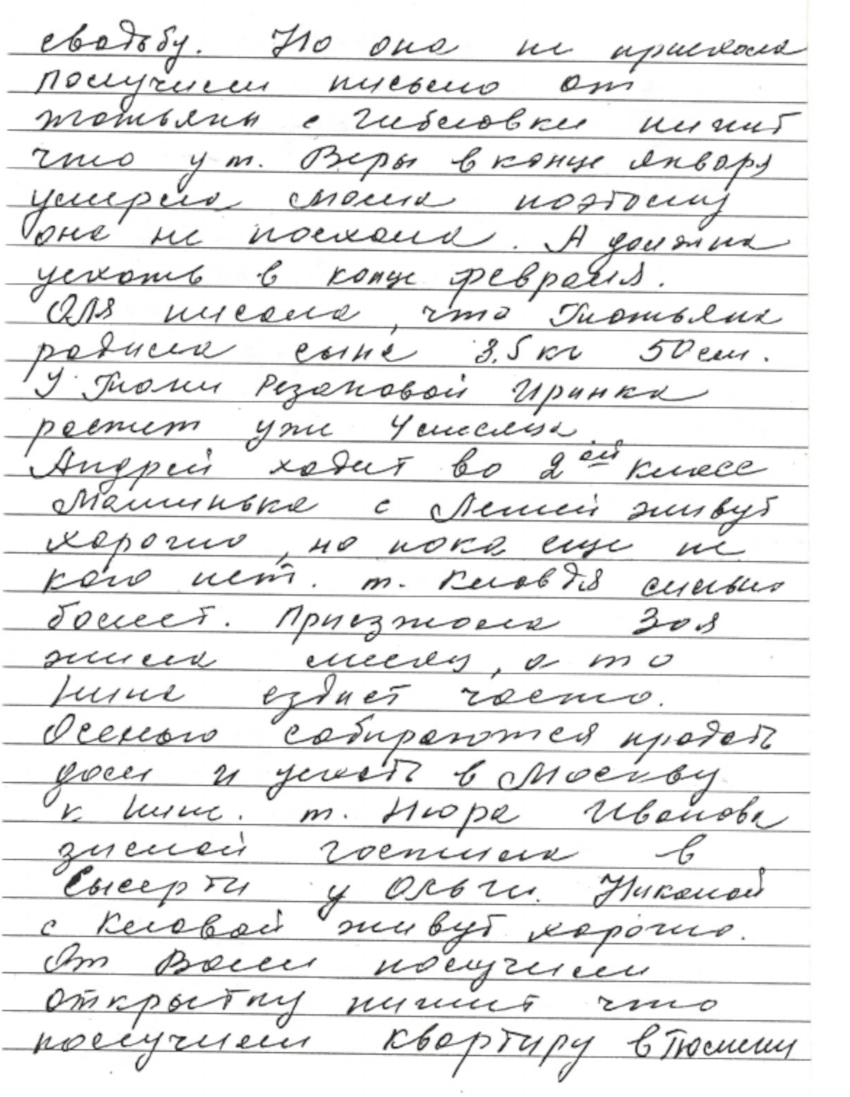 свадьбу. Но она не приехала
получили письмо от
Татьяны с Гибеловки пишит
что у т. Веры в конце января
умерла мама поэтому
она не поехала. А должна
уехать в конце февраля.
Оля писала, что Татьяна
родила сына 3.5 кг 50 см.
У Тани Резановой Иринка
растет уже 4 месяца.
Андрей ходит во 2ой класс
Машинька с Лешей живут
хорошо, но пока еще не
кого нет. т. Клавдя сильно
болеет. Приезжала Зоя
жила месяц, а то
Нина ездиет часто.
Осенью собираются продать
дом и уехать в Москву
к Нине. т. Нюра Иванова
зимой гостила в
Сысерти у Ольги. Николай
с Клавой живут хорошо.
От Вали получили
открытку пишит что
получили квартиру в Тюмени